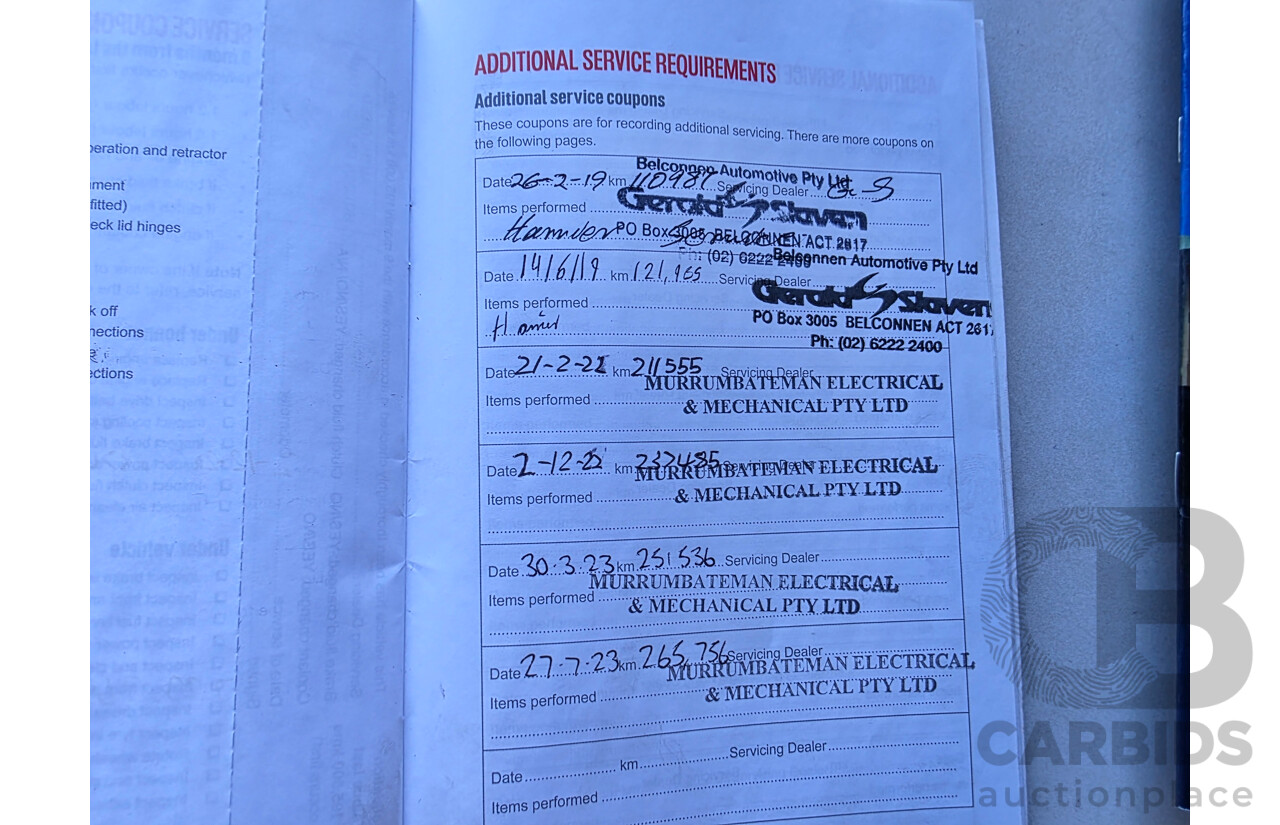 eration and retractor
ment
fitted)
eck lid hinges
k off
nections
ections
ADDITIONAL SERVICE REQUIREMENTS
Additional service coupons
These coupons are for recording additional servicing. There are more coupons on
the following pages.
Belconnen Automotive Pty Ltd
Date 26-2-19 km 110987 Servicing Dealer G-S
Gerald Slaven
Items performed
PO Box 3005 BELCONNEN ACT 2617
Ph: (02) 6222 2400
Belconnen Automotive Pty Ltd
Date 14/6/19 km 121,965 Servicing Dealer
Gerald Slaven
Items performed
PO Box 3005 BELCONNEN ACT 261
Ph: (02) 6222 2400
Date 21-2-22 km 211555 Servicing Dealer
MURRUMBATEMAN ELECTRICAL
Items performed
& MECHANICAL PTY LTD
Date 2-12-22 km 237485 Servicing Dealer
MURRUMBATEMAN ELECTRICAL
Items performed
& MECHANICAL PTY LTD
Date 30.3.23 km 251536 Servicing Dealer
MURRUMBATEMAN ELECTRICAL
Items performed
& MECHANICAL PTY LTD
Date 27.7.23 km 265,756 Servicing Dealer
MURRUMBATEMAN ELECTRICAL
Items performed
& MECHANICAL PTY LTD
Date km Servicing Dealer
Items performed
CB
CARBIDS
auctionplace